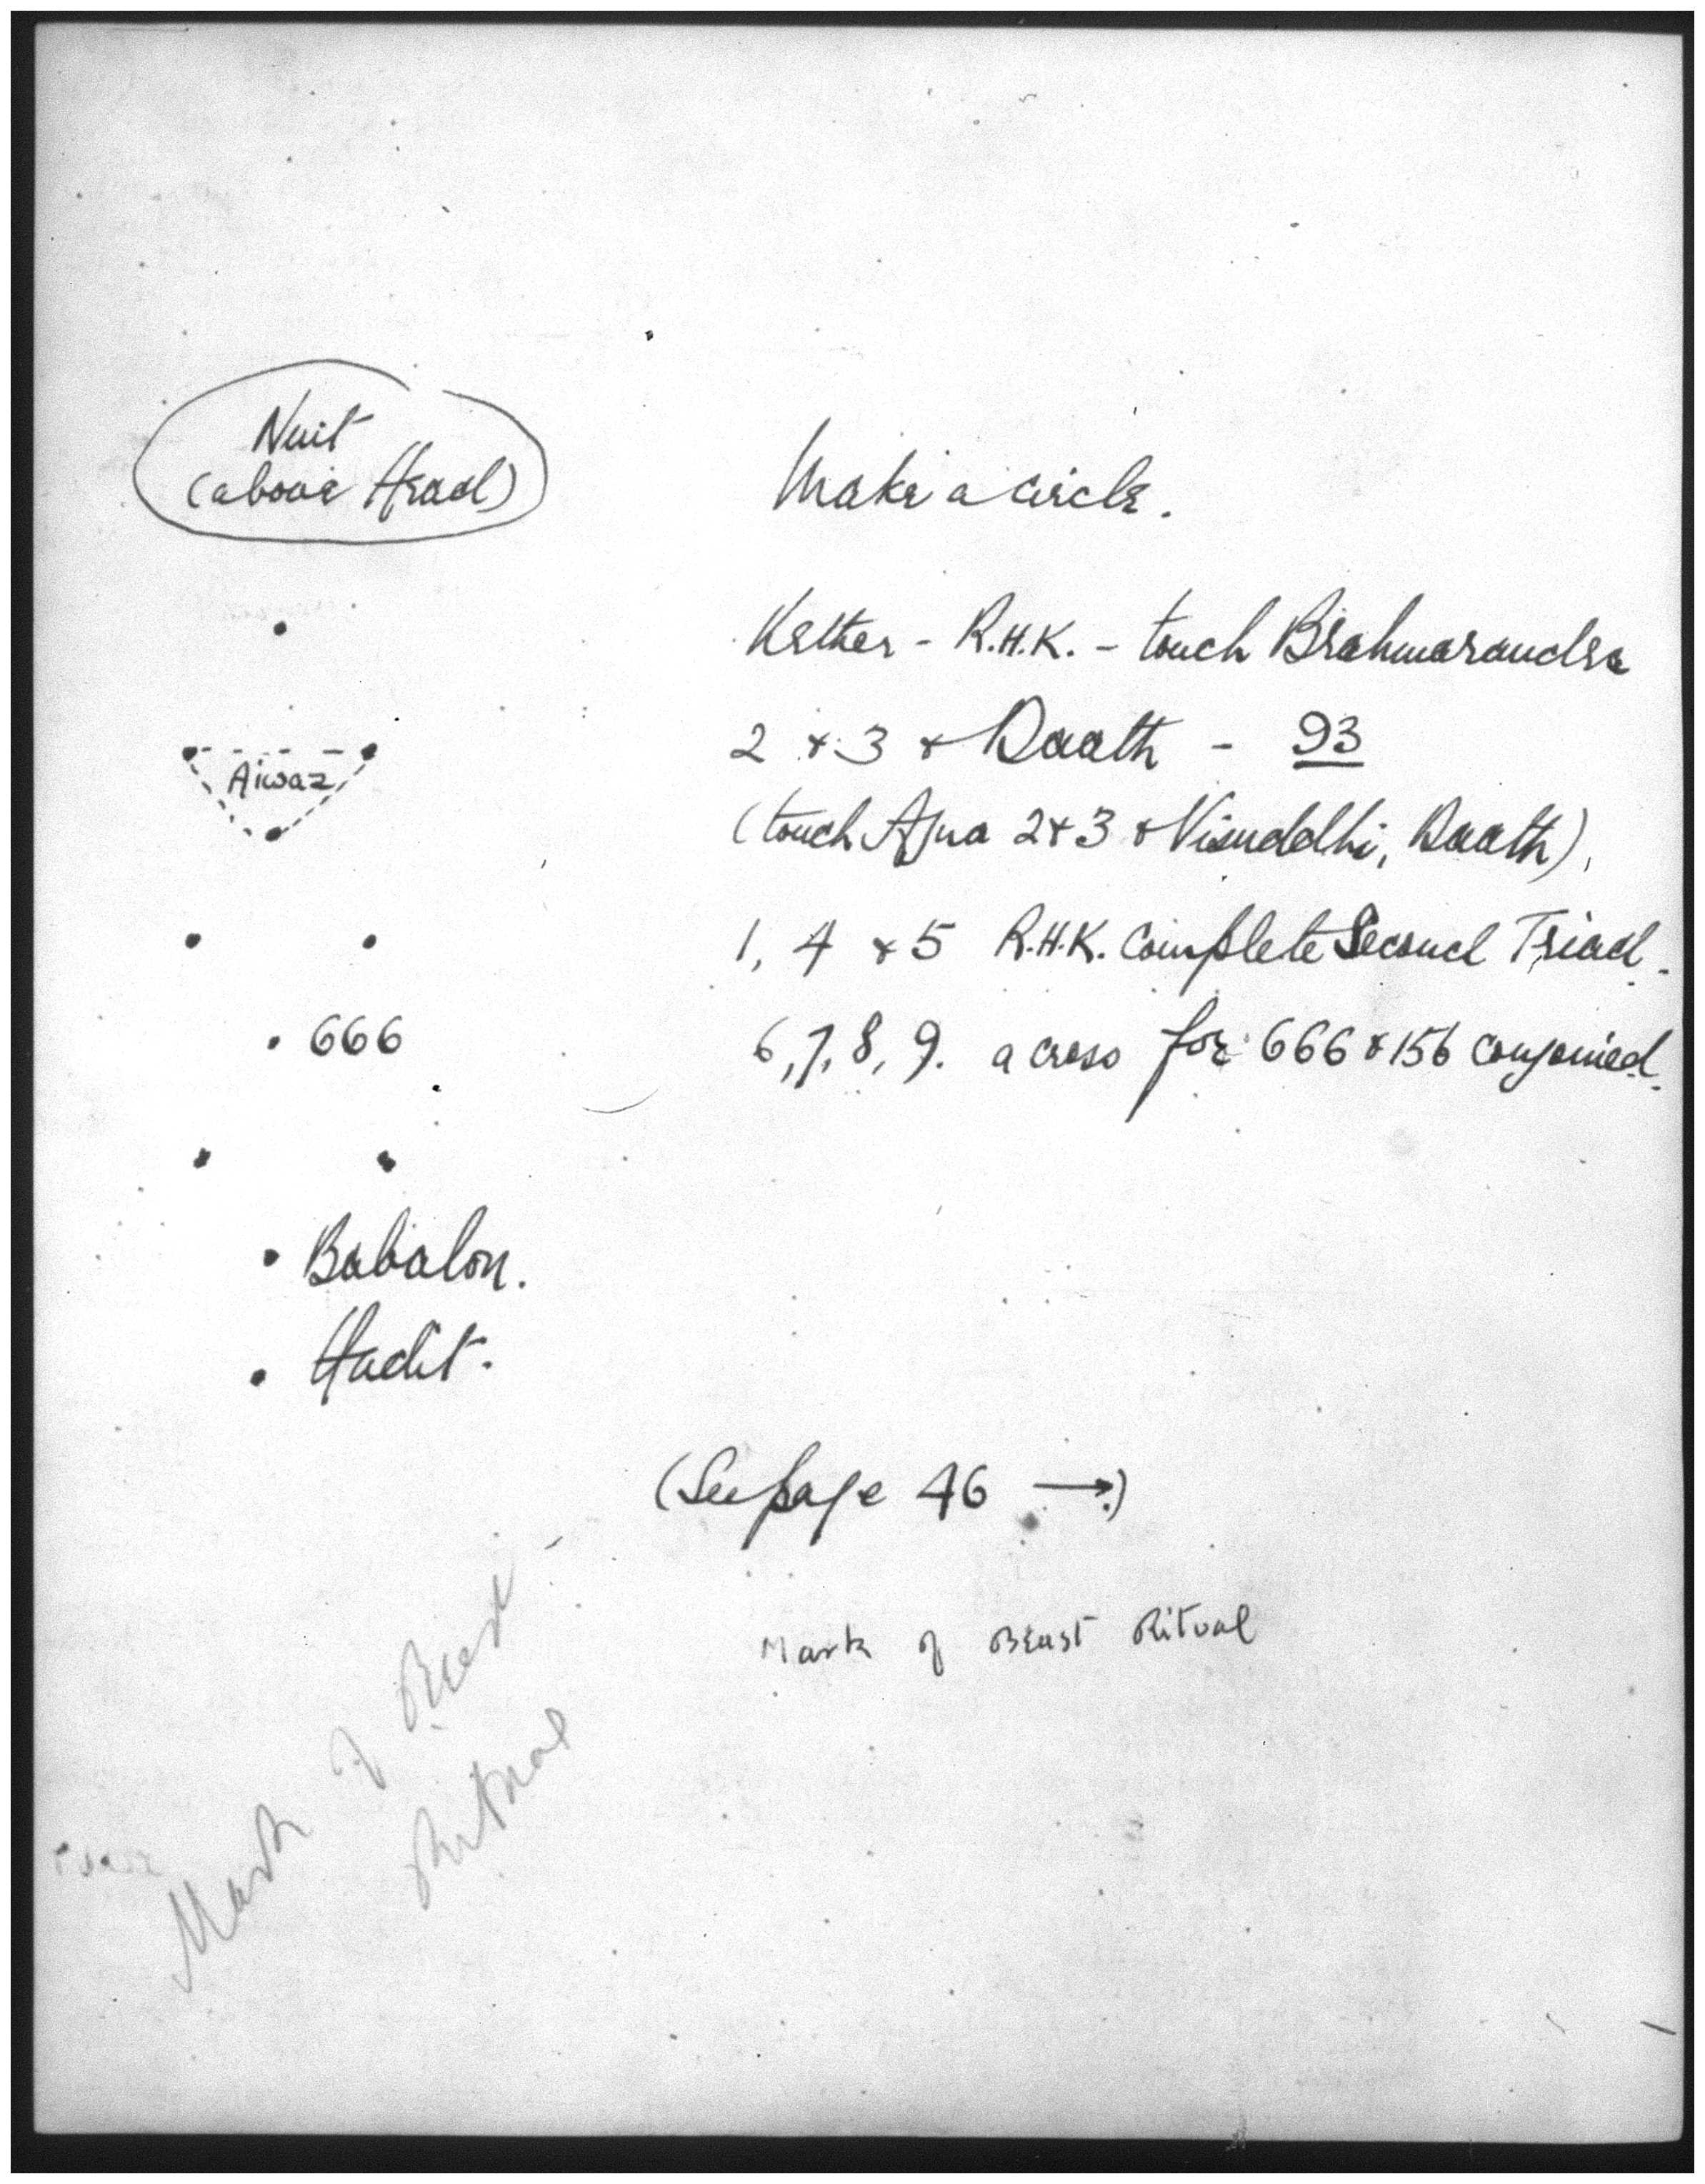 Nuit
(above Head)
Make a circle.
Kether - R.H.K. - touch Brahmarandra
2 & 3 & Daath - 93
Aiwaz
(touch Ajna 2 & 3 & Visuddhi, Daath),
1, 4 & 5 R.H.K. complete Second Triad.
666
6, 7, 8, 9. a cross for 666 & 156 conjoined.
Babalon.
Hadit.
(See page 46 →)
Mark of Beast Ritual
Mark of Beast
Ritual